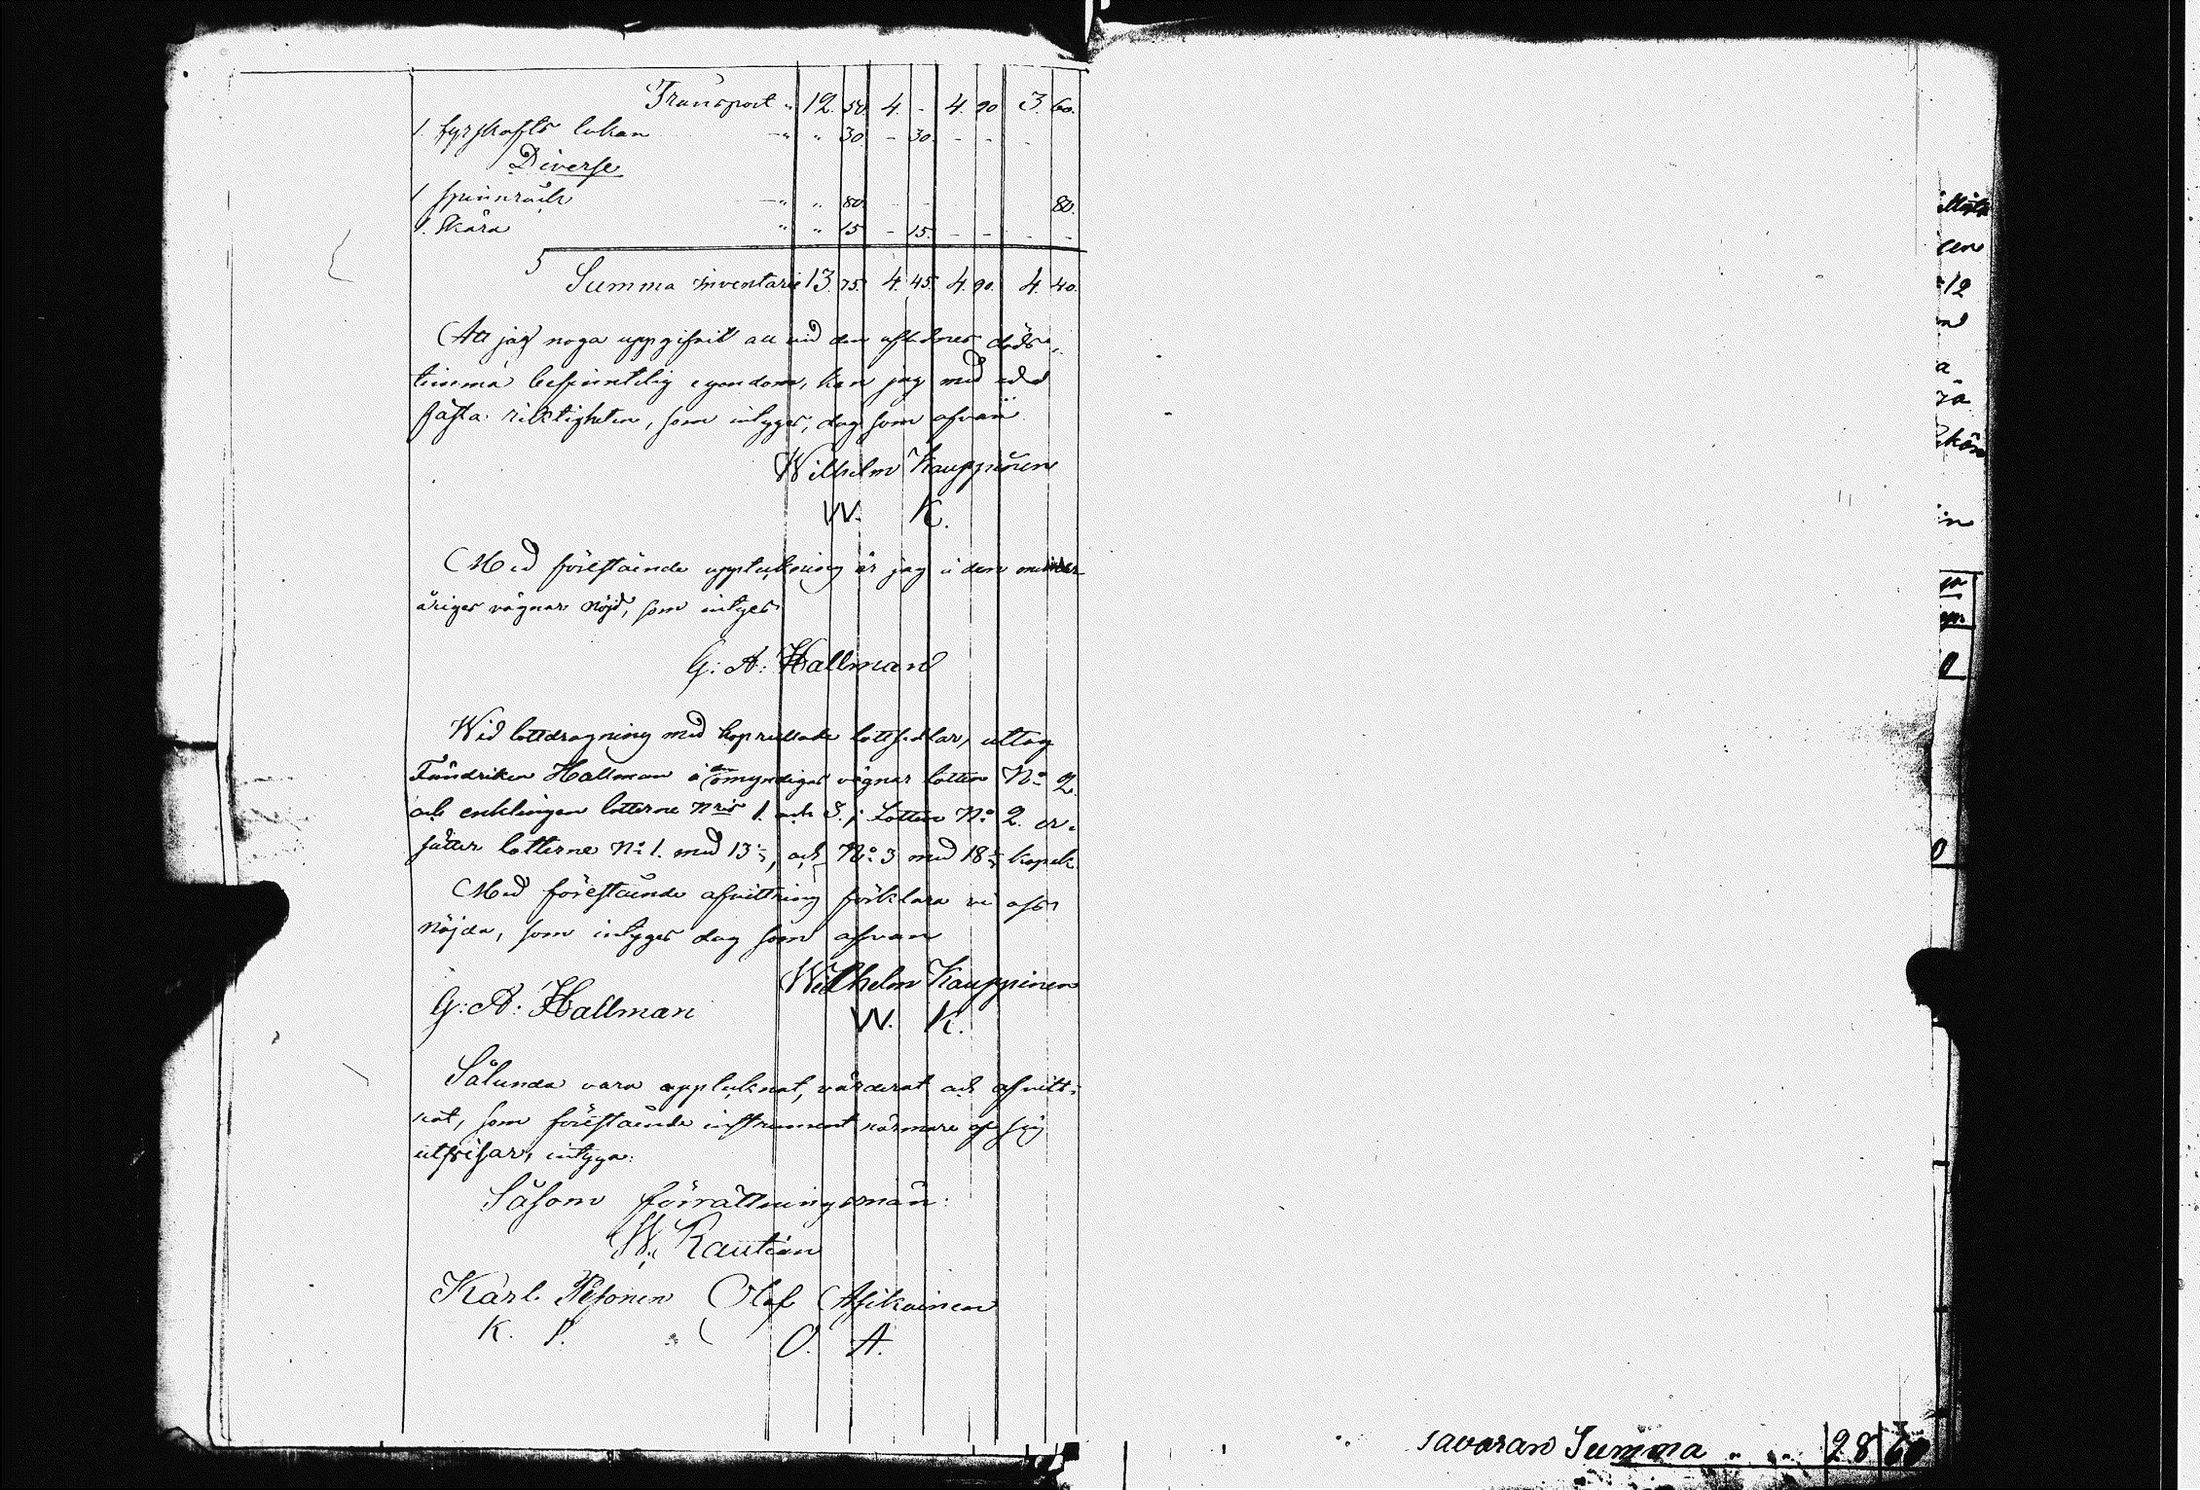 Transport " 12. 50. 4. - 4. 90 3. 60.
1. fyrskafts lakan " " 30 - 30. - - -
Diverse
1 spinnråck " " 80. - - 80.
1. Skära " " 15 - 15. - - - -
Summa inventarie 13. 75. 4. 45. 4. 90. 4. 40.
Att jag noga uppgifvit all vid den aflednes döds-
timma befinntelig egendom, kan jag med ed
fästa riktigheten, som intygas, dag som ofvan
Wilhelm Kauppinen
W. K.
Med förestående uppteckning är jag å den minder-
åriges vägnar nöjd, som intygas
G: A: Hallman
Wid lottdragning med hoprullade lottsedlar, uttog
Fändriken Hallman å den omyndiges vägnar lotten No 2.
och enklingen lotterne Nris 1. och 3.; Lotten No 2. er-
sätter lotterne No 1. med 13 och No 3 med 18 kopek
Med förestående afvittring förklara vi oss
nöjda, som intygas dag som ofvan
Wilhelm Kauppinen
G: A: Hallman W. K.
Sålunda vara upptecknat, värderat och afvitt-
rat, som förestående instrument närmare af sig
utvisar, intyga:
Såsom förrättningsmän:
W. Rautian
Karl Pesonen Olof Asikainen
K. P. O. A.
savaran Summa " " 28 60